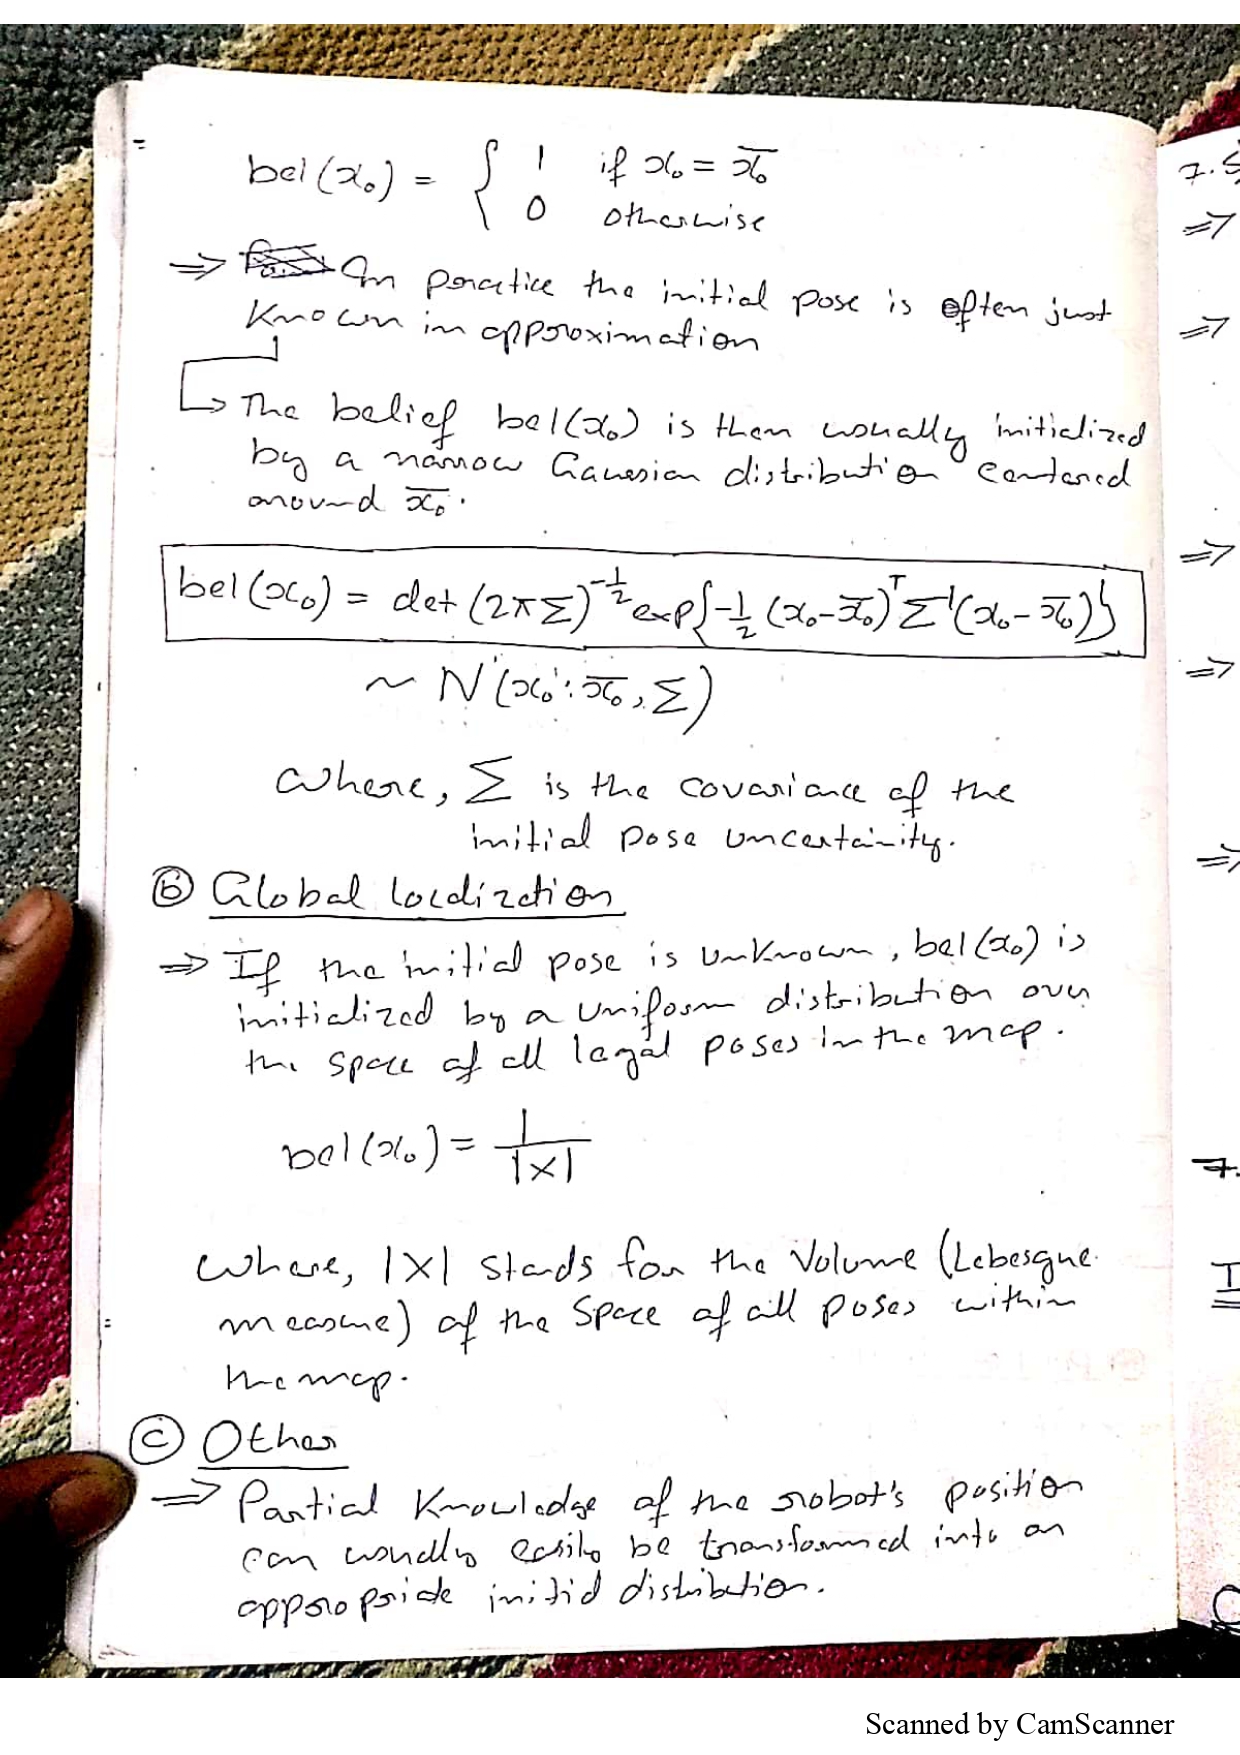 bel(x₀) = { 1 if x₀ = x̄₀
0 otherwise
⇒ In practice the initial pose is often just
known in approximation
↳ The belief bel(x₀) is then usually initialized
by a narrow Gaussian distribution centered
around x̄₀.
bel(x₀) = det(2πΣ)^(-1/2) exp{-1/2 (x₀-x̄₀)ᵀ Σ⁻¹(x₀-x̄₀)}
~ N(x₀; x̄₀, Σ)
where, Σ is the covariance of the
initial pose uncertainity.
ⓑ Global localization
⇒ If the initial pose is unknown, bel(x₀) is
initialized by a uniform distribution over
the space of all legal poses in the map.
bel(x₀) = 1/|X|
where, |X| stands for the Volume (Lebesgue
measure) of the space of all poses within
the map.
ⓒ Other
⇒ Partial Knowledge of the robot's position
can usually easily be transformed into an
appropriate initial distribution.
7.5
⇒
⇒
⇒
⇒
⇒
7.
I
Scanned by CamScanner